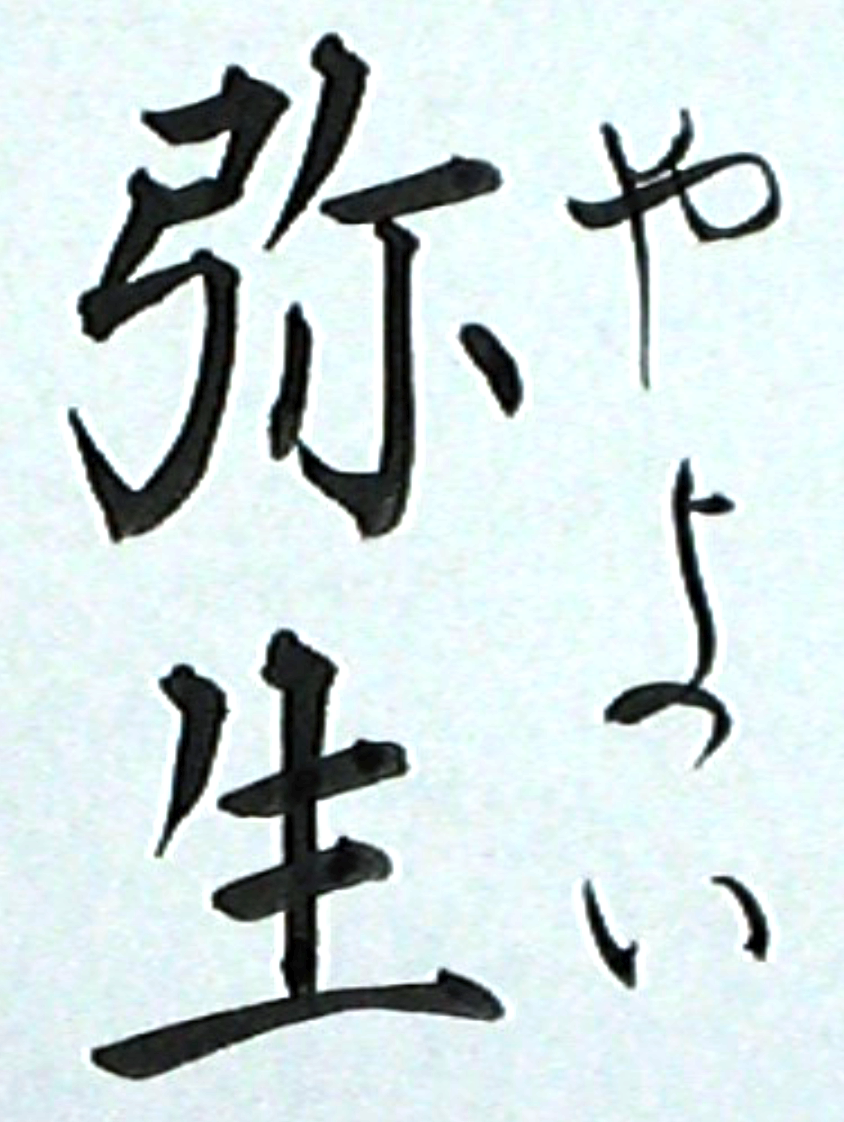 やよい
弥生